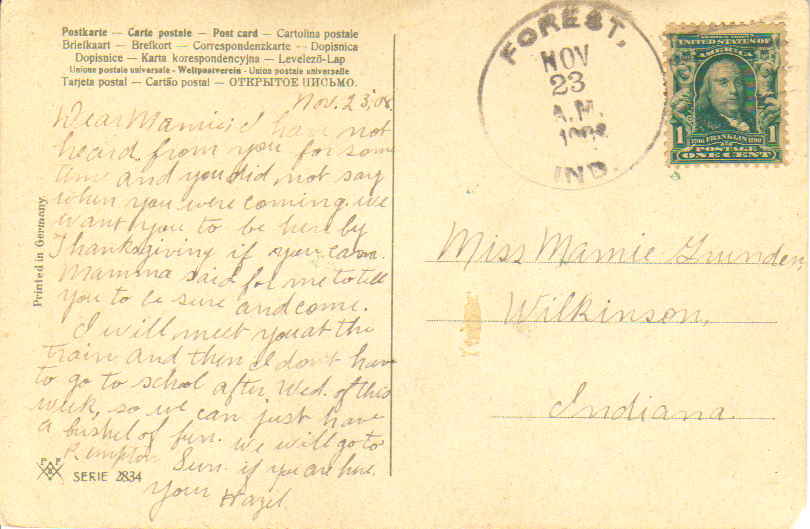 Postkarte — Carte postale — Post card — Cartolina postale
Briefkaart — Brefkort — Correspondenzkarte — Dopisnica
Dopisnice — Karta korespondencyjna — Levelező-Lap
Unione postale universale - Weltpostverein - Union postale universelle
Tarjeta postal — Cartão postal — ОТКРЫТОЕ ПИСЬМО.
Nov. 23, 08.
Dear Mamie; I have not
heard from you for some
time and you did not say
when you were coming. we
want you to be here by
Thanksgiving if you can.
Mamma said for me to tell
you to be sure and come.
I will meet you at the
train and then I don't have
to go to school after Wed. of this
week, so we can just have
a bushel of fun. we will go to
Kempton Sun. if you are here.
Your Hazel.
Printed in Germany
P F B
SERIE 2834
FOREST,
NOV
23
A.M.
1908
IND.
SERIES 1902
UNITED STATES OF
AMERICA
1 1706 FRANKLIN 1790 1
POSTAGE
ONE CENT
Miss Mamie Grunden
Wilkinson,
Indiana.